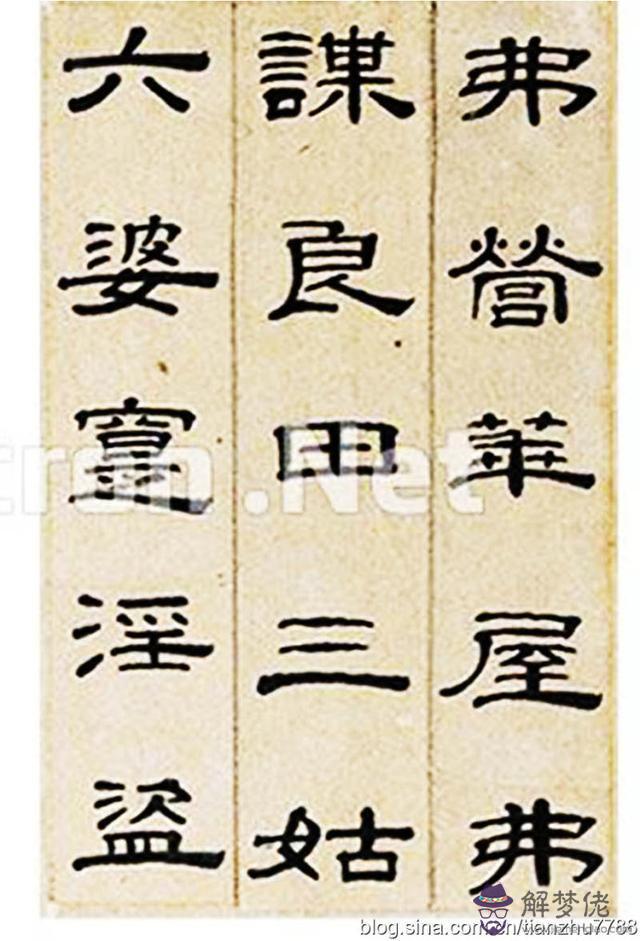 弗營華屋弗
謀良田三姑
六婆寔淫盜
.Net
解梦佬
blog.sina.com.cn/